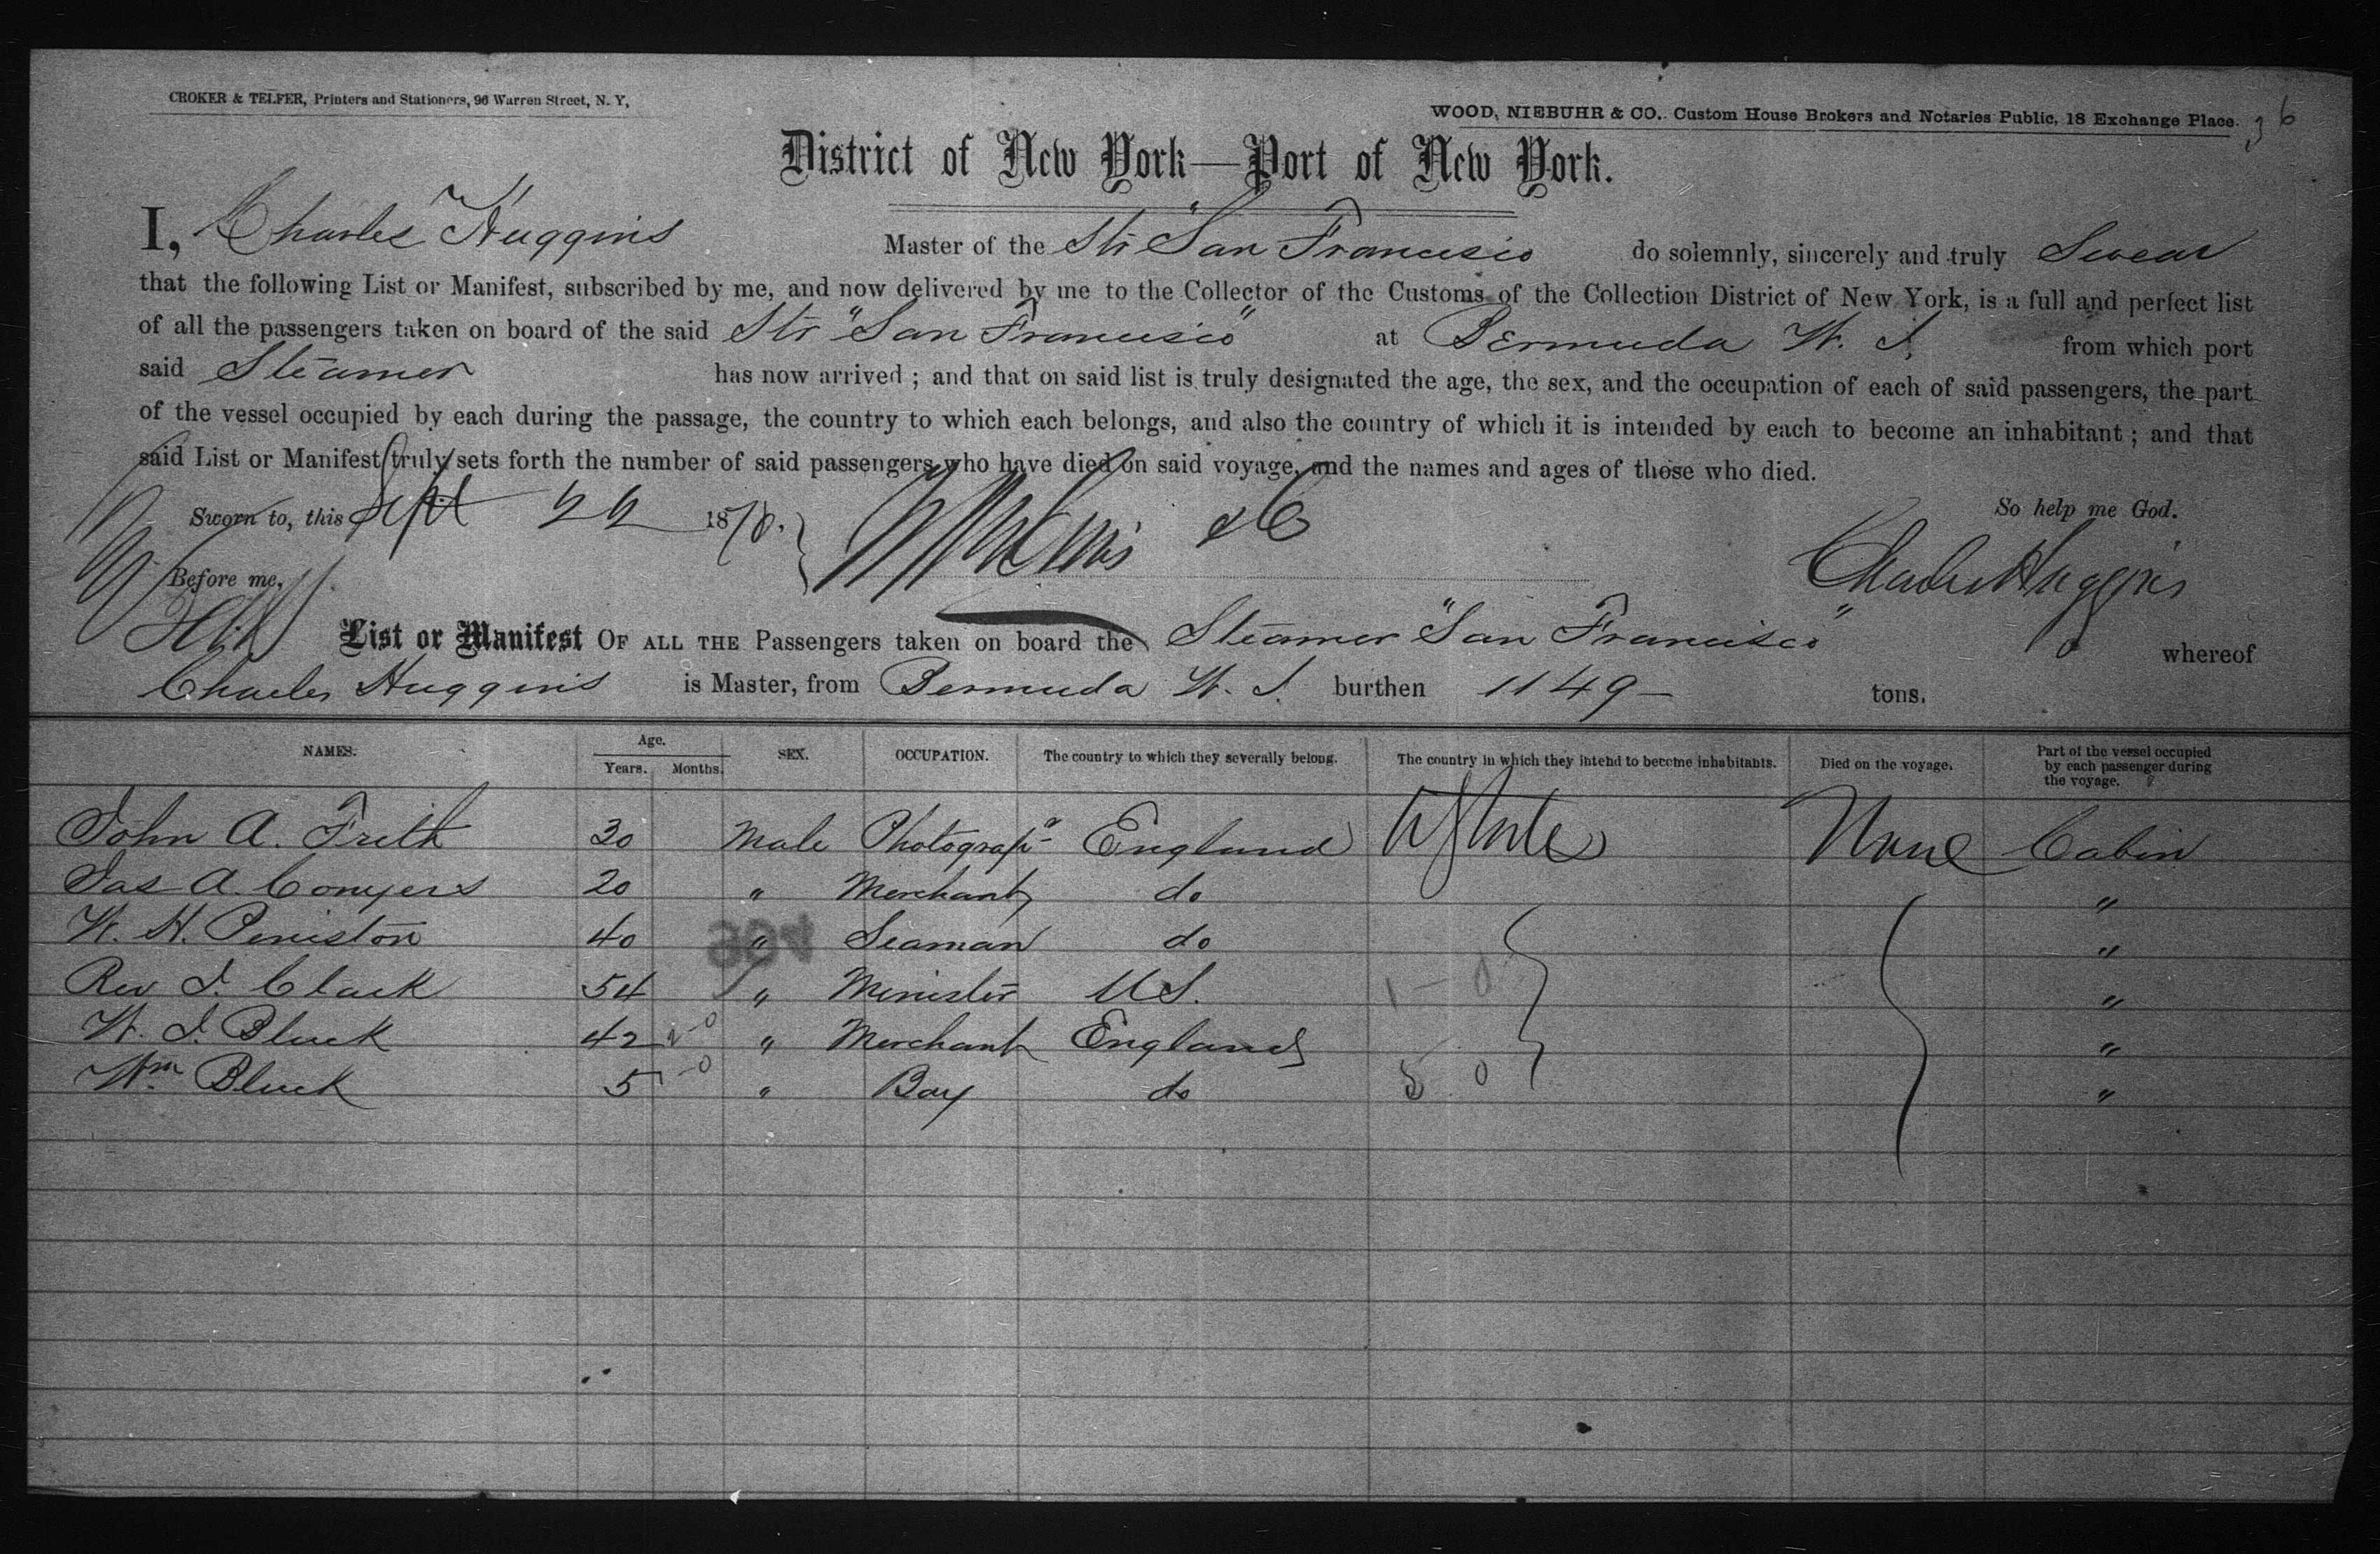 CROKER & TELFER, Printers and Stationers, 96 Warren Street, N. Y,
WOOD, NIEBUHR & CO. Custom House Brokers and Notaries Public, 18 Exchange Place. 36
District of New York—Port of New York.
I, Charles Huggins Master of the Str "San Francisco do solemnly, sincerely and truly Swear
that the following List or Manifest, subscribed by me, and now delivered by me to the Collector of the Customs of the Collection District of New York, is a full and perfect list
of all the passengers taken on board of the said Str "San Francisco" at Bermuda W. I. from which port
said Steamer has now arrived ; and that on said list is truly designated the age, the sex, and the occupation of each of said passengers, the part
of the vessel occupied by each during the passage, the country to which each belongs, and also the country of which it is intended by each to become an inhabitant ; and that
said List or Manifest truly sets forth the number of said passengers who have died on said voyage, and the names and ages of those who died.
Sworn to, this Sept 22 1878. So help me God.
Before me, Charles Huggins
List or Manifest OF ALL THE Passengers taken on board the Steamer "San Francisco" whereof
Charles Huggins is Master, from Bermuda W. I. burthen 1149 tons.
NAMES. Age. Years. Months. SEX. OCCUPATION. The country to which they severally belong. The country in which they intend to become inhabitants. Died on the voyage. Part of the vessel occupied by each passenger during the voyage.
John A. Frith 30 Male Photograpr England None Cabin
Jas A. Conyers 20 " Merchant do "
W. H. Peniston 40 " Seaman do "
Rev J. Clark 54 " Minister U S. 1 - 0 "
W. J. Bluck 42 2-0 " Merchant England "
Wm Bluck 5 -0 " Boy do 5 0 "